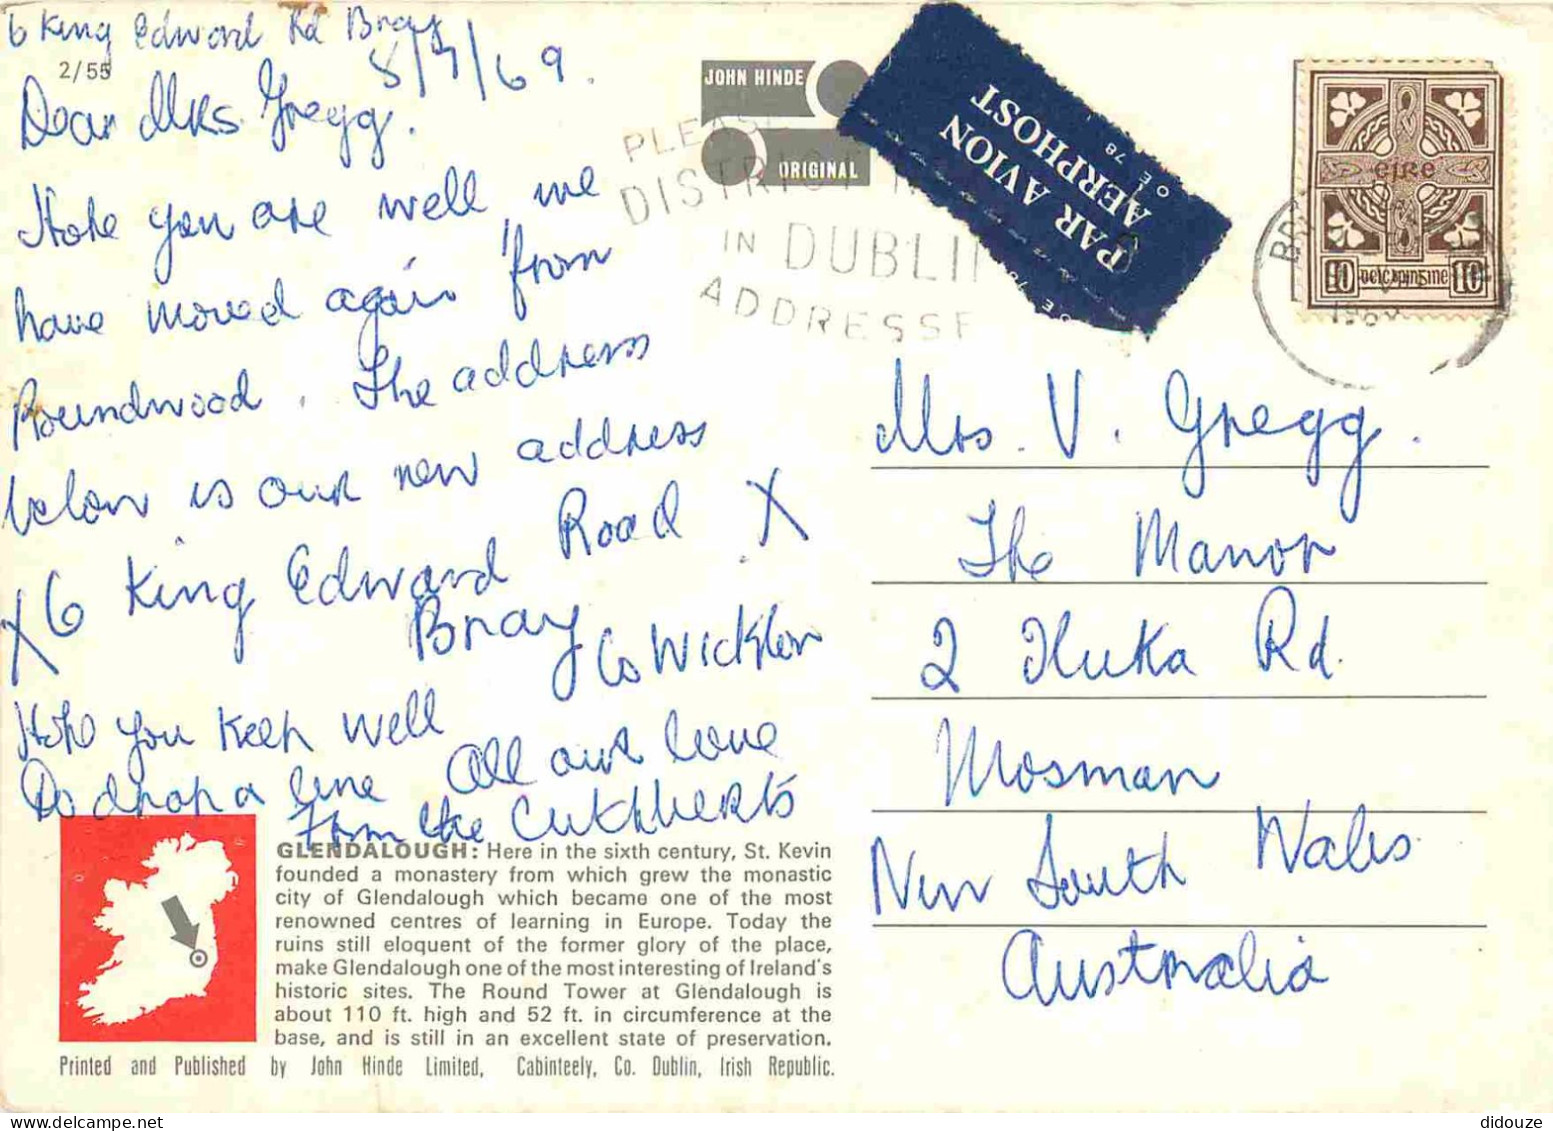 6 King Edward Rd Bray
2/55
8/7/69.
Dear Mrs Gregg.
Hope you are well we
have moved again from
Roundwood. The address
below is our new address
X 6 King Edward Road X
Bray Co Wicklow
Hope you keep well
Do drop a line All our love
from the Cuthberts
GLENDALOUGH: Here in the sixth century, St. Kevin
founded a monastery from which grew the monastic
city of Glendalough which became one of the most
renowned centres of learning in Europe. Today the
ruins still eloquent of the former glory of the place,
make Glendalough one of the most interesting of Ireland's
historic sites. The Round Tower at Glendalough is
about 110 ft. high and 52 ft. in circumference at the
base, and is still in an excellent state of preservation.
Printed and Published by John Hinde Limited, Cabinteely, Co. Dublin, Irish Republic.
JOHN HINDE
ORIGINAL
PLEASE
DISTRICT
IN DUBLIN
ADDRESSE
PAR AVION
AERPHOST
O.E. 78
O.E. 78
éire
10 10
Mrs. V. Gregg.
The Manor
2 Iluka Rd.
Mosman
New South Wales
Australia
didouze